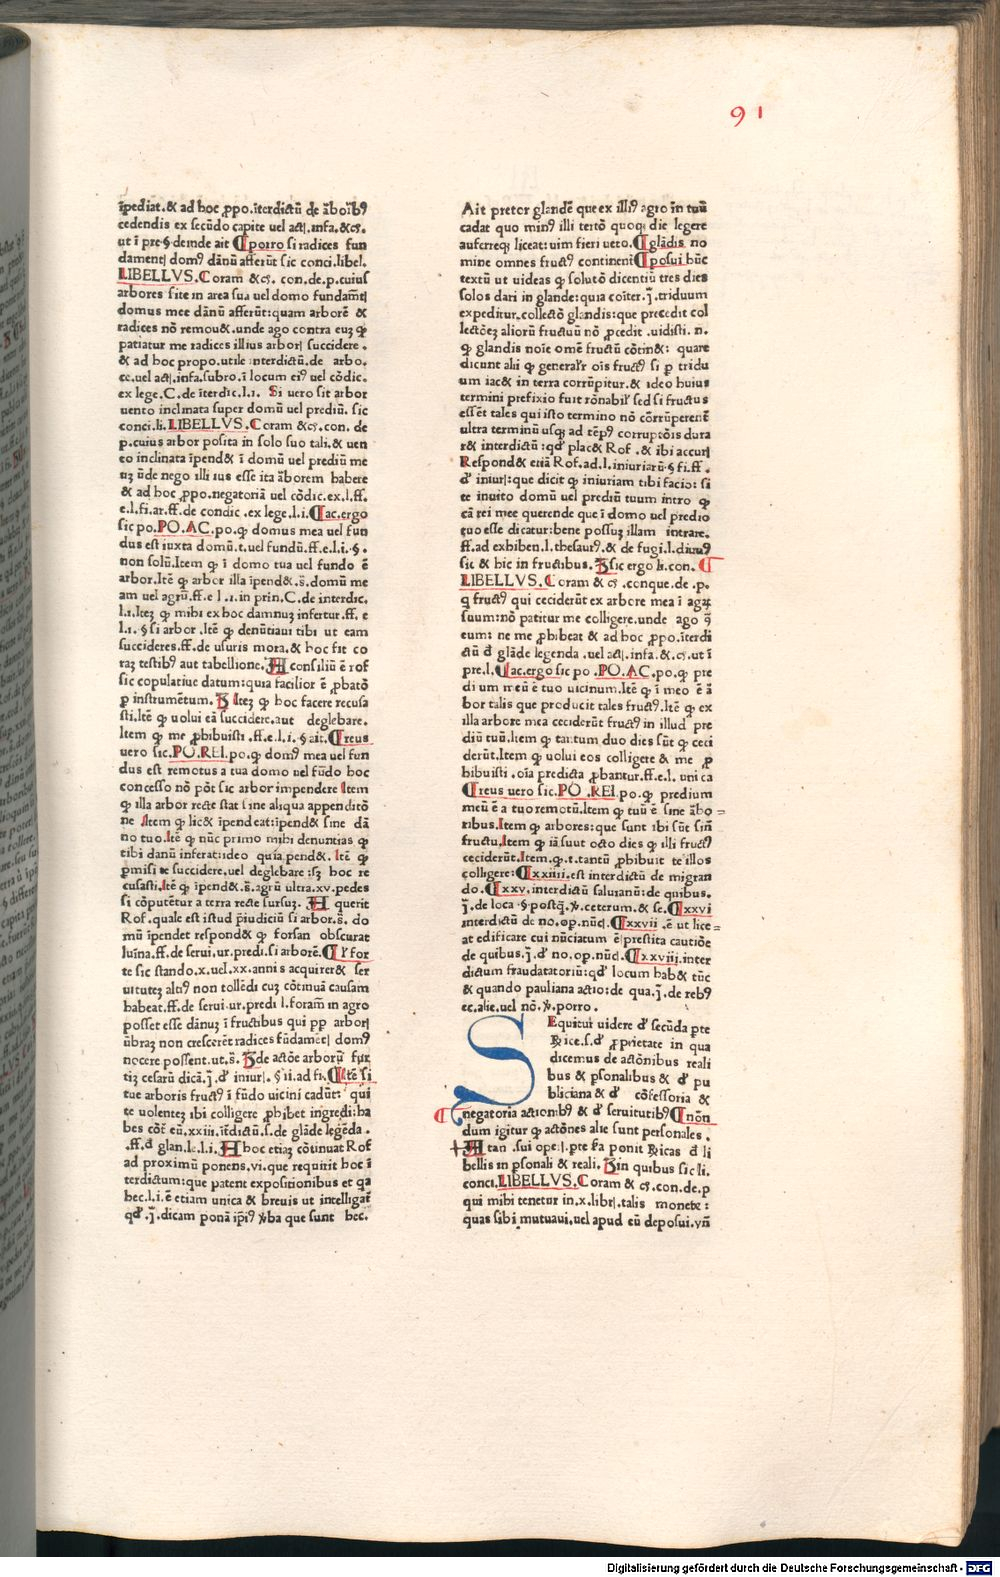 91
īpediat.& ad hoc ꝓpo.īterdictū de āboꝛ̄bꝰ
cedendis ex secūdo capite uel act.infa.&cꝭ.
ut ī pre§ deinde ait ¶porro si radices fun
dament domꝰ dānū afferūt sic conci.libel.
LIBELLVS.Coram &cꝭ. con.de.p.cuius
arbores site in area sua uel domo fundamēt
domus mee dānū afferūt:quam arborē &
radices nō remou&.unde ago contra euꝫ ꝙ
patiatur me radices illius arbor succidere.
& ad hoc propo.utile interdictū.de arbo.
ce.uel act.infa.subro.ī locum eiꝰ uel cōdic.
ex lege.C.de īterdic.l.i. Si uero sit arbor
uento inclinata super domū uel prediū. sic
conci.li.LIBELLVS.Coram &cꝭ.con. de
p.cuius arbor posita in solo suo tali.& uen
to inclinata īpend& ī domū uel prediū me
uꝫ ūde nego illi ius esse ita āborem habere
& ad hoc ꝓpo.negatoriā uel cōdic.ex.l.ff.
e.l.fi.ar.ff.de condic .ex lege.l.i.¶ac.ergo
sic po.PO.AC.po.ꝙ domus mea uel fun
dus est iuxta domū.t.uel fundū.ff.e.l.i.§.
non solū.Item ꝙ ī domo tua uel fundo ē
arbor.Itē ꝙ arbor illa īpend&.s̄.domū me
am uel agrū.ff.e l.1.in prin.C.de interdic.
l.1.Iteꝫ ꝙ mihi ex hoc damnuꝫ infertur.ff. e
l.1.§ si arbor .Itē ꝙ denūtiaui tibi ut eam
succideres.ff.de usuris mora.& hoc fit co
raꝫ testibꝰ aut tabellione. consiliū ē rof
sic copulatiue datum:quia facilior ē ꝓbatō
ꝑ instrumētum. Iteꝫ ꝙ hoc facere recusa
sti.Itē ꝙ uolui eā succidere.aut deglebare.
Item ꝙ me ꝓhibuisti .ff.e.l.i.§ ait.¶reus
uero sic.PO.REI.po.ꝙ domꝰ mea uel fun
dus est remotus a tua domo uel fūdo hoc
concesso nō pōt sic arbor impendere Item
ꝙ illa arbor recte stat sine aliqua appenditō
ne Item ꝙ lic& īpendeat:ipend& sine dā
no tuo.Itē ꝙ nūc primo mihi denuntias ꝙ
tibi danū inferat:ideo quia pend&. Itē ꝙ
ꝑmisi te succidere.uel deglebare :sꝫ hoc re
cusasti.Itē ꝙ īpend&.s̄.agrū ultra.xv.pedes
si cōputētur a terra recte sursuꝫ. querit
Rof.quale est istud p̄iudiciū si arbor.s̄. do
mū īpendet respond& ꝙ forsan obscurat
luīna.ff.de serui.ur.predi.si arborē.¶It̄ for
te sic stando.x.uel.xx.annis acquirer& ser
uituteꝫ altiꝰ non tollēdi cuꝫ cōtinuā causam
habeat.ff.de serui.ur.predi l.foram̄ in agro
posset esse dānuꝫ ī fructibus qui ꝓp̄ arbor
ūbraꝫ non crescerēt radices fūdamēt domꝰ
nocere possent.ut.s̄. de actōe arborū fur
tiꝫ cesarū dicā.j̄.đ iniur. § ii.ad fi.¶Itē si
tue arboris fructꝰ ī fūdo uicini cadūt: qui
te uolenteꝫ ibi colligere ꝓhibet ingredi:ha
bes cōtra eū.xxiii.īterdictū.s.de glāde legēda .
.ff.đ glan.le.l.i. hoc etiaꝫ cōtinuat Rof
ad proximū ponens.vi.que requirit hoc ī
terdictum:que patent expositionibus et qa
hec.l.i.ē etiam unica & breuis ut intelligat̄
qđ .j̄.dicam ponā ip̄iꝰ v̄ba que sunt hec.
Ait pretor glandē que ex illiꝰ agro īn tuū
cadat quo minꝰ illi tertō quoqꝫ die legere
auferreqꝫ liceat:uim fieri ueto.¶glādis no
mine omnes fructꝰ contineni¶posui hūc
textū ut uideas ꝙ solutō dicentiū tres dies
solos dari in glande:quia cōiter.j̄.triduum
expeditur.collectō glandis:que precedit col
lectōeꝫ aliorū fructuū nō ꝓcedit .uidisti. n.
ꝙ glandis noīe omē fructū cōtin&: quare
dicunt alii ꝙ generalr̄ oīs fructꝰ si ꝑ tridu
um iac& in terra corrūpitur.& ideo huius
termini prefixio fuit rōnabil sed si fructus
essēt tales qui isto termino nō cōrrūperenē
ultra terminū usqꝫ ad tēpꝰ corruptōis dura
r& interdictū:qđ plac& Rof .& ibi accur
Respond& etiā Rof.ad.l.iniuriarū.§ fi.ff.
đ iniur:que dicit ꝙ iniuriam tibi facio: si
te inuito domū uel prediū tuum intro ꝙ
cā rei mee querende que ī domo uel predio
tuo esse dicatur:bene possuꝫ illam intrare.
ff.ad exhiben.l.thesaurꝰ.& de fugi.l.diuꝰ
sic & hic in fructibus. sic ergo li.con. ¶
LIBELLVS.Coram & cꝭ .conque.de .p.
ꝙ fructꝰ qui ceciderūt ex arbore mea ī agꝝ
suum:nō patitur me colligere.unde ago ꝯ̄
eum: ne me ꝓhibeat & ad hoc ꝓpo.īterdi
ctū đ glāde legenda .uel act.infa.&.cꝭ.ut ī
pre.l.¶ac.ergo sic po .PO.AC.po.ꝙ pre
dium meū ē tuo uicinum.Itē ꝙ ī meo ē ā
bor talis que producit tales fructꝰ.Itē ꝙ ex
illa arbore mea ceciderūt fructꝰ in illud pre
diū tuū.Item ꝙ tantum duo dies sūt ꝙ ceci
derūt.Item ꝙ uolui eos colligere & me ꝓ
hibuisti .oīa predicta ꝓbantur.ff.e.l. uni ca
¶reus uero sic.PO .REI.po.ꝙ predium
meū ē a tuo remotū.Item ꝙ tuū ē sine ābo=
ribus.Item ꝙ arbores:que sunt ibi sūt sin̄
fructu.Item ꝙ iā suut octo dies ꝙ illi fructꝰ
ceciderūt.Item.ꝙ.t.tantū ꝓhibuit te illos
colligere:¶xxiiii.est interdictū de migran
do.¶xxv.interdictū saluianū:de quibus.
j̄.de loca .§ postq̄.v̄.ceterum.& se.¶xxvi
interdictū de no.op.nūc.¶xxvii .ē ut lice=
at edificare cui nūciatum ē prestita cautiōe
de quibus.j̄.đ no.op.nūc.¶xxviii.inter
dictum fraudatatoriū:qđ locum hab& tūc
& quando pauliana actio:de qua.j̄.de rebꝰ
ec.alie.uel nō.v̄.porro.
SEquitur uidere đ secūda ꝑte
R̄ice.s.đ ꝓprietate in qua
dicemus de actōnibus reali
bus & ꝑsonalibus & đ pu
bliciana & đ cōfessoria &
¶negatoria actionībꝰ & đ seruitutibꝰ¶nōn
dum igitur ꝙ actōnes alie sunt personales.
tan .sui ope.pte s̄a ponit R̄icas đ li
bellis in ꝑsonali & reali. in quibus sic li.
conci.LIBELLVS.Coram & cꝭ.con.de.p
qui mihi tenetur in.x.libr.talis monete:
quas sibi mutuaui.uel apud eū deposui.vn̄
Digitalisierung gefördert durch die Deutsche Forschungsgemeinschaft - DFG